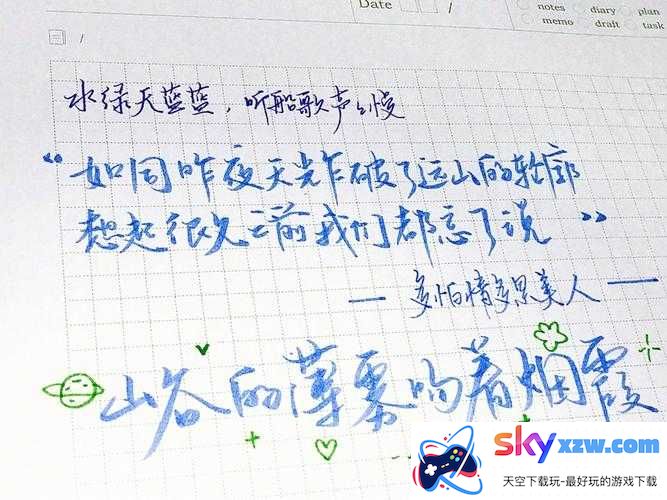 Date / notes diary plan
memo draft task
/
水绿天蓝蓝，听船歌声声慢
“如同昨夜天光乍破了远山的轮廓
想起很久之前我们都忘了说”
—多怕情多思美人—
山谷的薄雾吻着烟霞
skyxzw.com
天空下载玩-最好玩的游戏下载